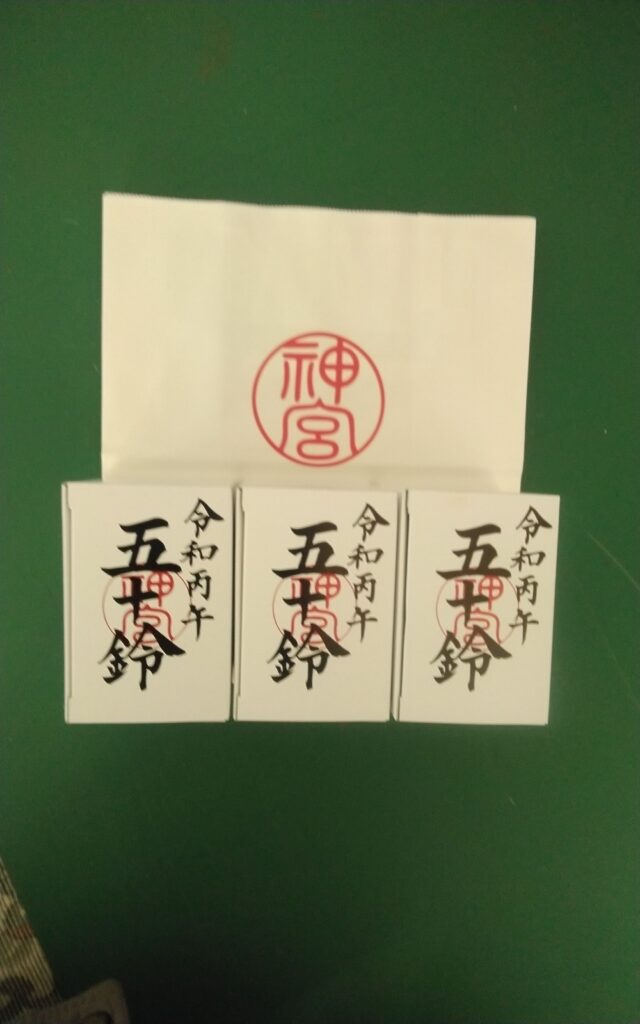 神宮
令和丙午
五十鈴
神宮
令和丙午
五十鈴
神宮
令和丙午
五十鈴
神宮